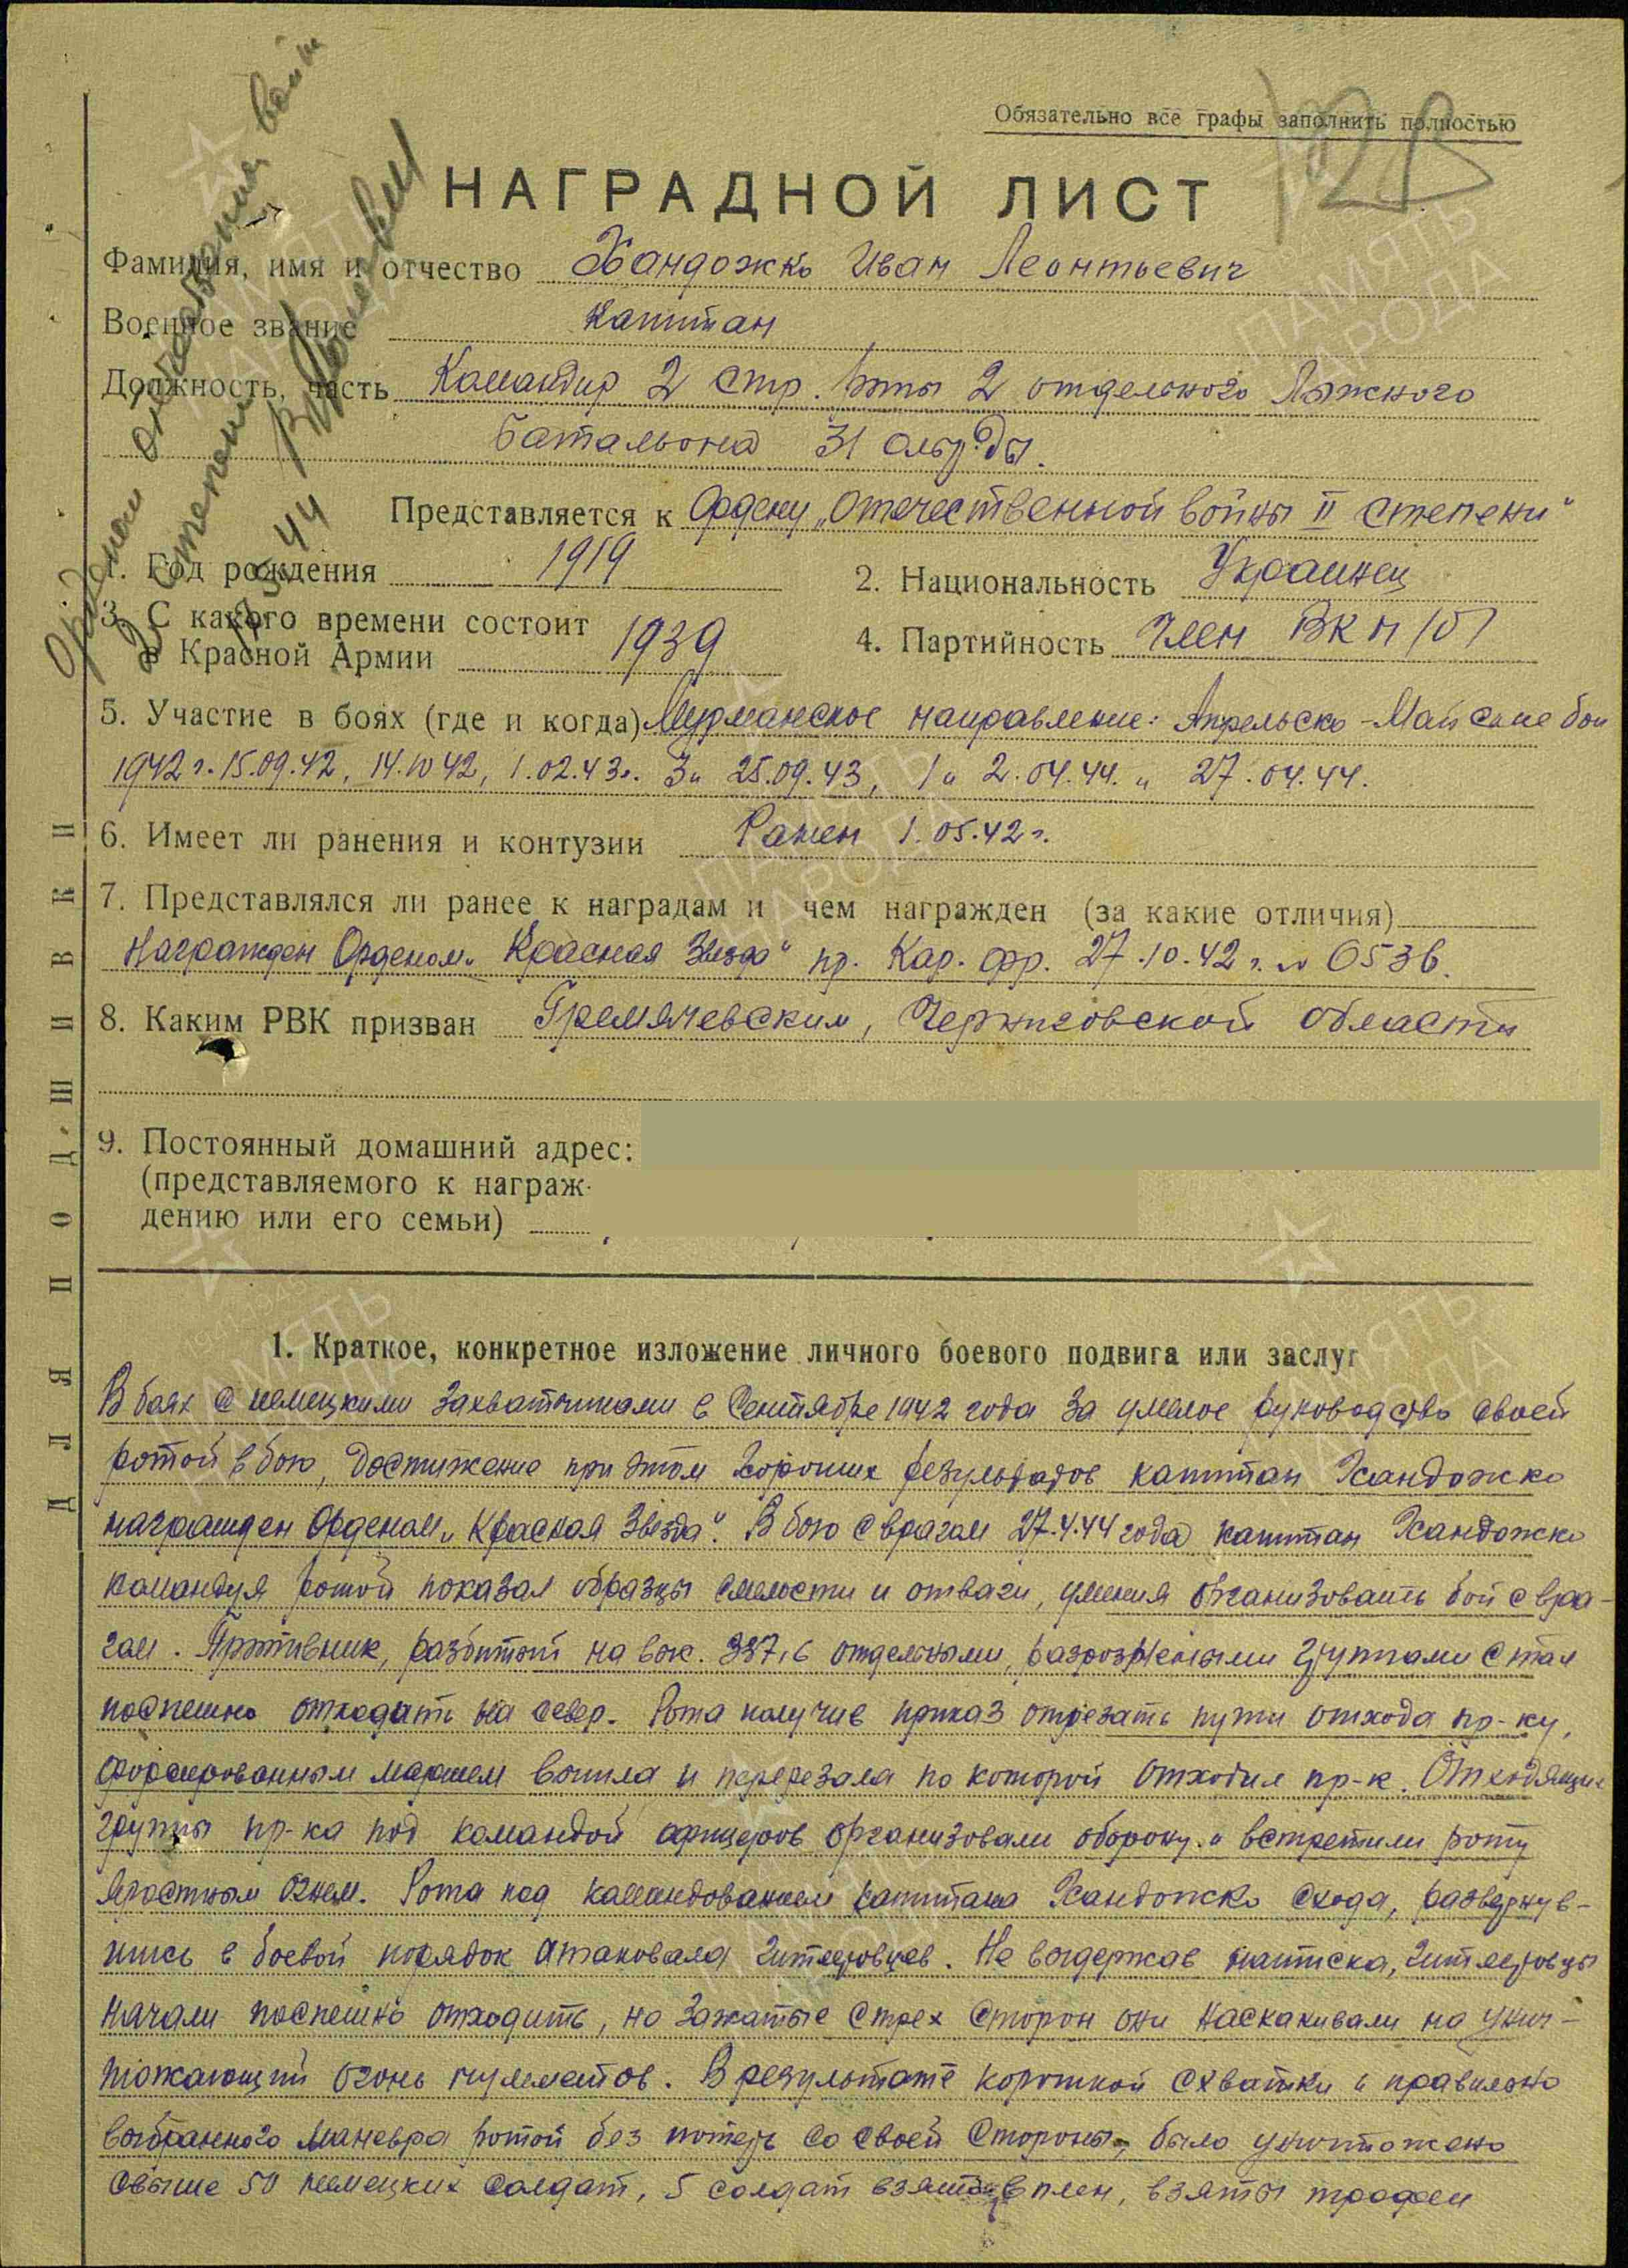 Обязательно все графы заполнить полностью
НАГРАДНОЙ ЛИСТ
Фамилия, имя и отчество Хандожко Иван Леонтьевич
Военное звание Капитан
Должность, часть Командир 2 стр. роты 2 отдельного Лыжного
Батальона 31 олыжбр.
Представляется к Ордену „Отечественной войны II степени“
1. Год рождения 1919
2. Национальность Украинец
3. С какого времени состоит
в Красной Армии 1939
4. Партийность Член ВКП(б)
5. Участие в боях (где и когда) Мурманское направление: Апрельско-Майские бои
1942 г. 15.09.42, 14.10 42, 1.02.43г. 3 и 25.09.43, 1 и 2.04.44. и 27.04.44.
6. Имеет ли ранения и контузии Ранен 1.05.42 г.
7. Представлялся ли ранее к наградам и чем награжден (за какие отличия)
Награжден Орденом „Красная Звезда“ пр. Кар. фр. 27.10.42 г. № 0536.
8. Каким РВК призван Гремячевским, Черниговской области
9. Постоянный домашний адрес:
(представляемого к награж-
дению или его семьи)
1. Краткое, конкретное изложение личного боевого подвига или заслуг
В боях с немецкими захватчиками в Сентябре 1942 года за умелое руководство своей
ротой в бою, достижение при этом хороших результатов капитан Хандожко
награжден Орденом „Красная Звезда“. В бою с врагом 27.4.44 года капитан Хандожко
командуя ротой показал образцы смелости и отваги, умения организовать бой с вра-
гом. Противник, разбитый на выс. 337,6 отдельными, разрозненными группами стал
поспешно отходить на север. Рота получив приказ отрезать пути отхода пр-ку,
форсированным маршем вышла и перерезала по которой отходил пр-к. Отходящие
группы пр-ка под командой офицеров организовали оборону и встретили роту
яростным огнем. Рота под командованием капитана Хандожко с хода, развернув-
шись в боевой порядок атаковала гитлеровцев. Не выдержав натиска, гитлеровцы
начали поспешно отходить, но зажатые с трех сторон они наскакивали на унич-
тожающий огонь пулеметов. В результате короткой схватки и правильно
выбранного маневра ротой без потерь со своей стороны, было уничтожено
свыше 50 немецких солдат, 5 солдат взято в плен, взяты трофеи
ДЛЯ ПОДШИВКИ
Орденом отечественная война
2 степени
44
ПАМЯТЬ
НАРОДА